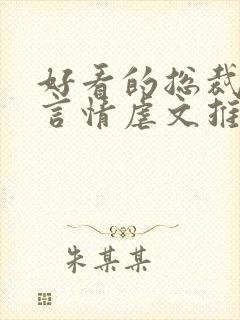 好看的总裁
言情虐文推
朱某某